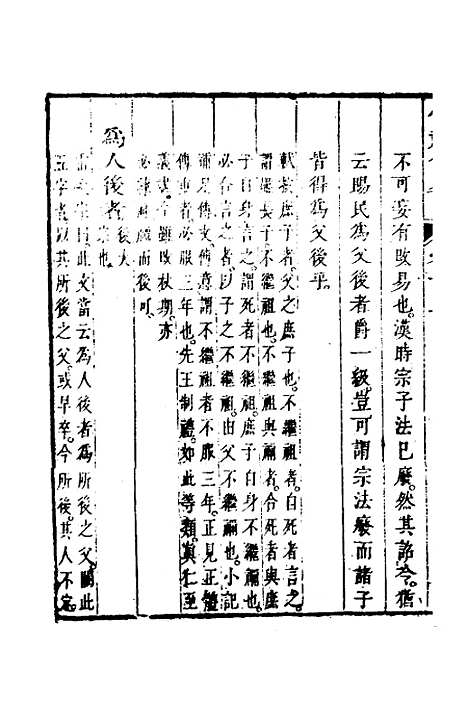 不可妄有改易也。漢時宗子法已廢。然其詔令。猶
云賜民為父後者爵一級。豈可謂宗法廢而諸子
皆得為父後乎。
載按。庶子者。父之庶子也。不繼祖者。自死者言之。
謂是長子不繼祖與禰者。合死者與庶
子自身言之。謂死者不繼祖。庶子自身不繼禰也。
必合言之者。以子之不繼祖。由父不繼禰也。小記
傳意謂不繼祖者不服三年。正見正體
傳重者必服三年也。先王制禮。如此等類。真仁至
雖改杖期。亦
而後可。
為人後者
此文當云為人後者為所後之父。闕此
五字者。以其所後之父。或早卒。今所後。其人不定。